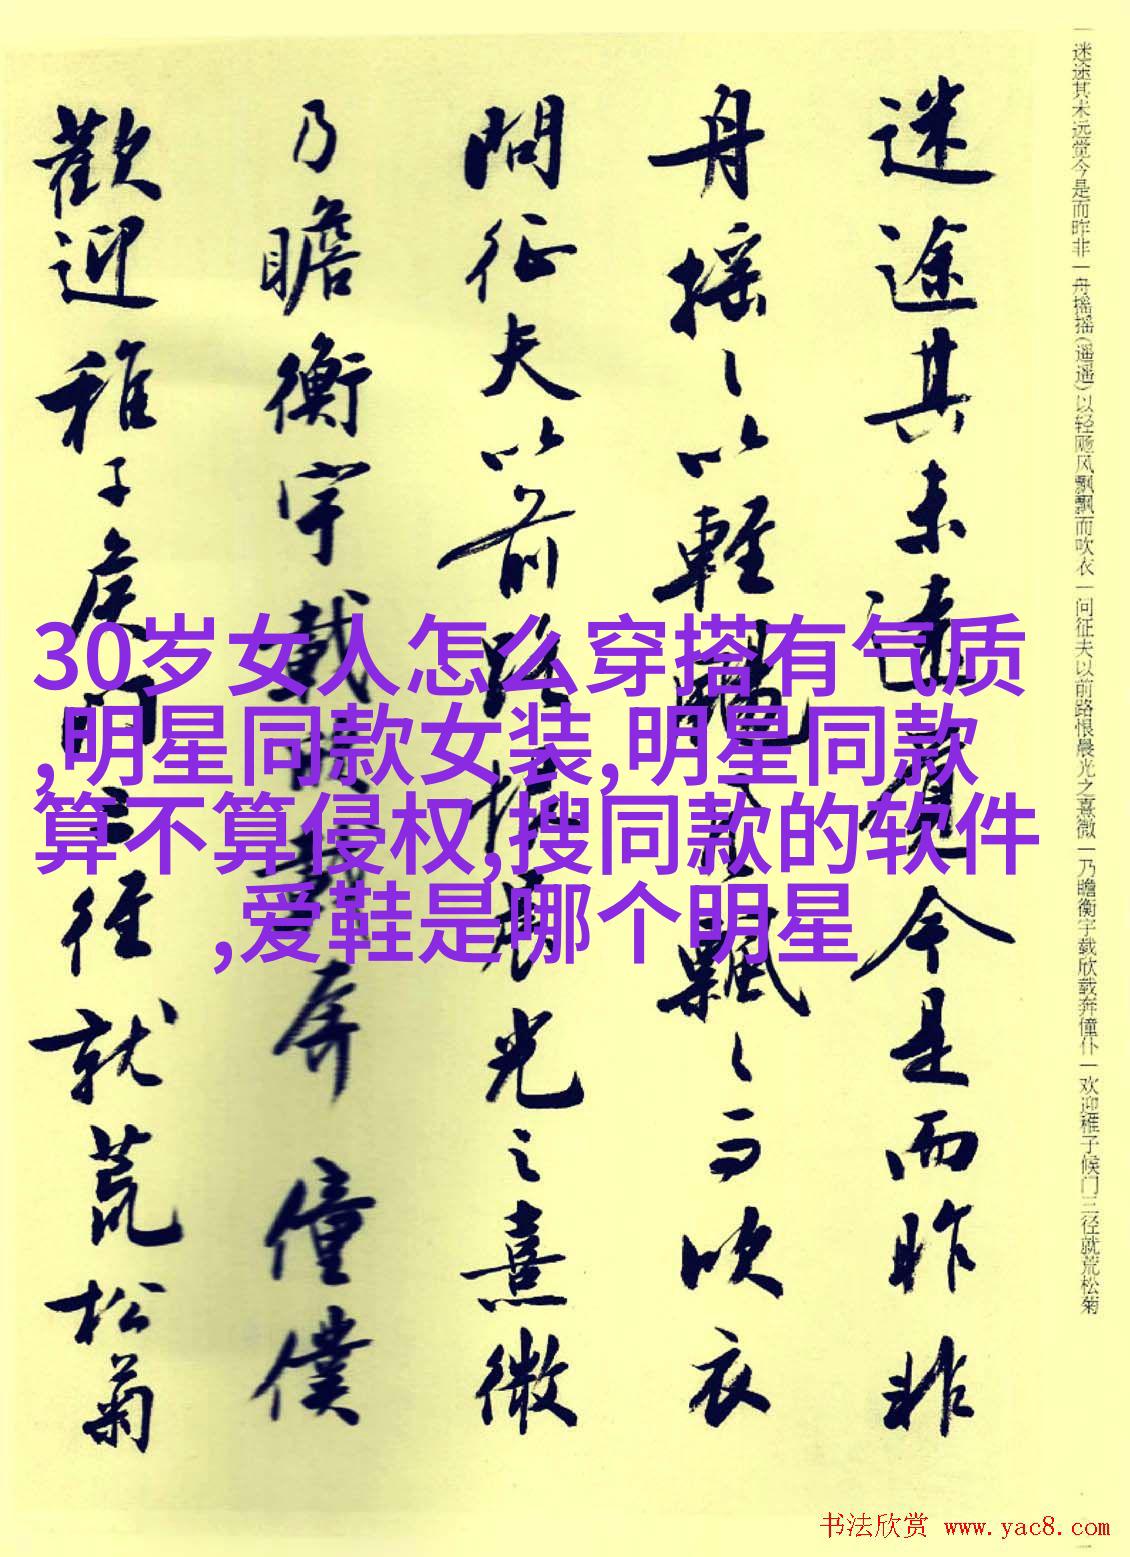 迷途其未遠覺今是而昨非
舟摇〻以輕颺風飄〻而吹衣
問征夫以前路恨晨光之熹微
乃瞻衡宇載欣載奔僮僕
歡迎稚子候門三徑就荒松菊
一迷途其未远觉今是而昨非一舟摇摇(遥遥)以轻飏风飘飘而吹衣一问征夫以前路恨晨光之熹微一乃瞻衡宇载欣载奔僮仆一欢迎稚子候门三径就荒松菊
30岁女人怎么穿搭有气质
,明星同款女装,明星同款
算不算侵权,搜同款的软件
,爱鞋是哪个明星
书法欣赏 www.yac8.com